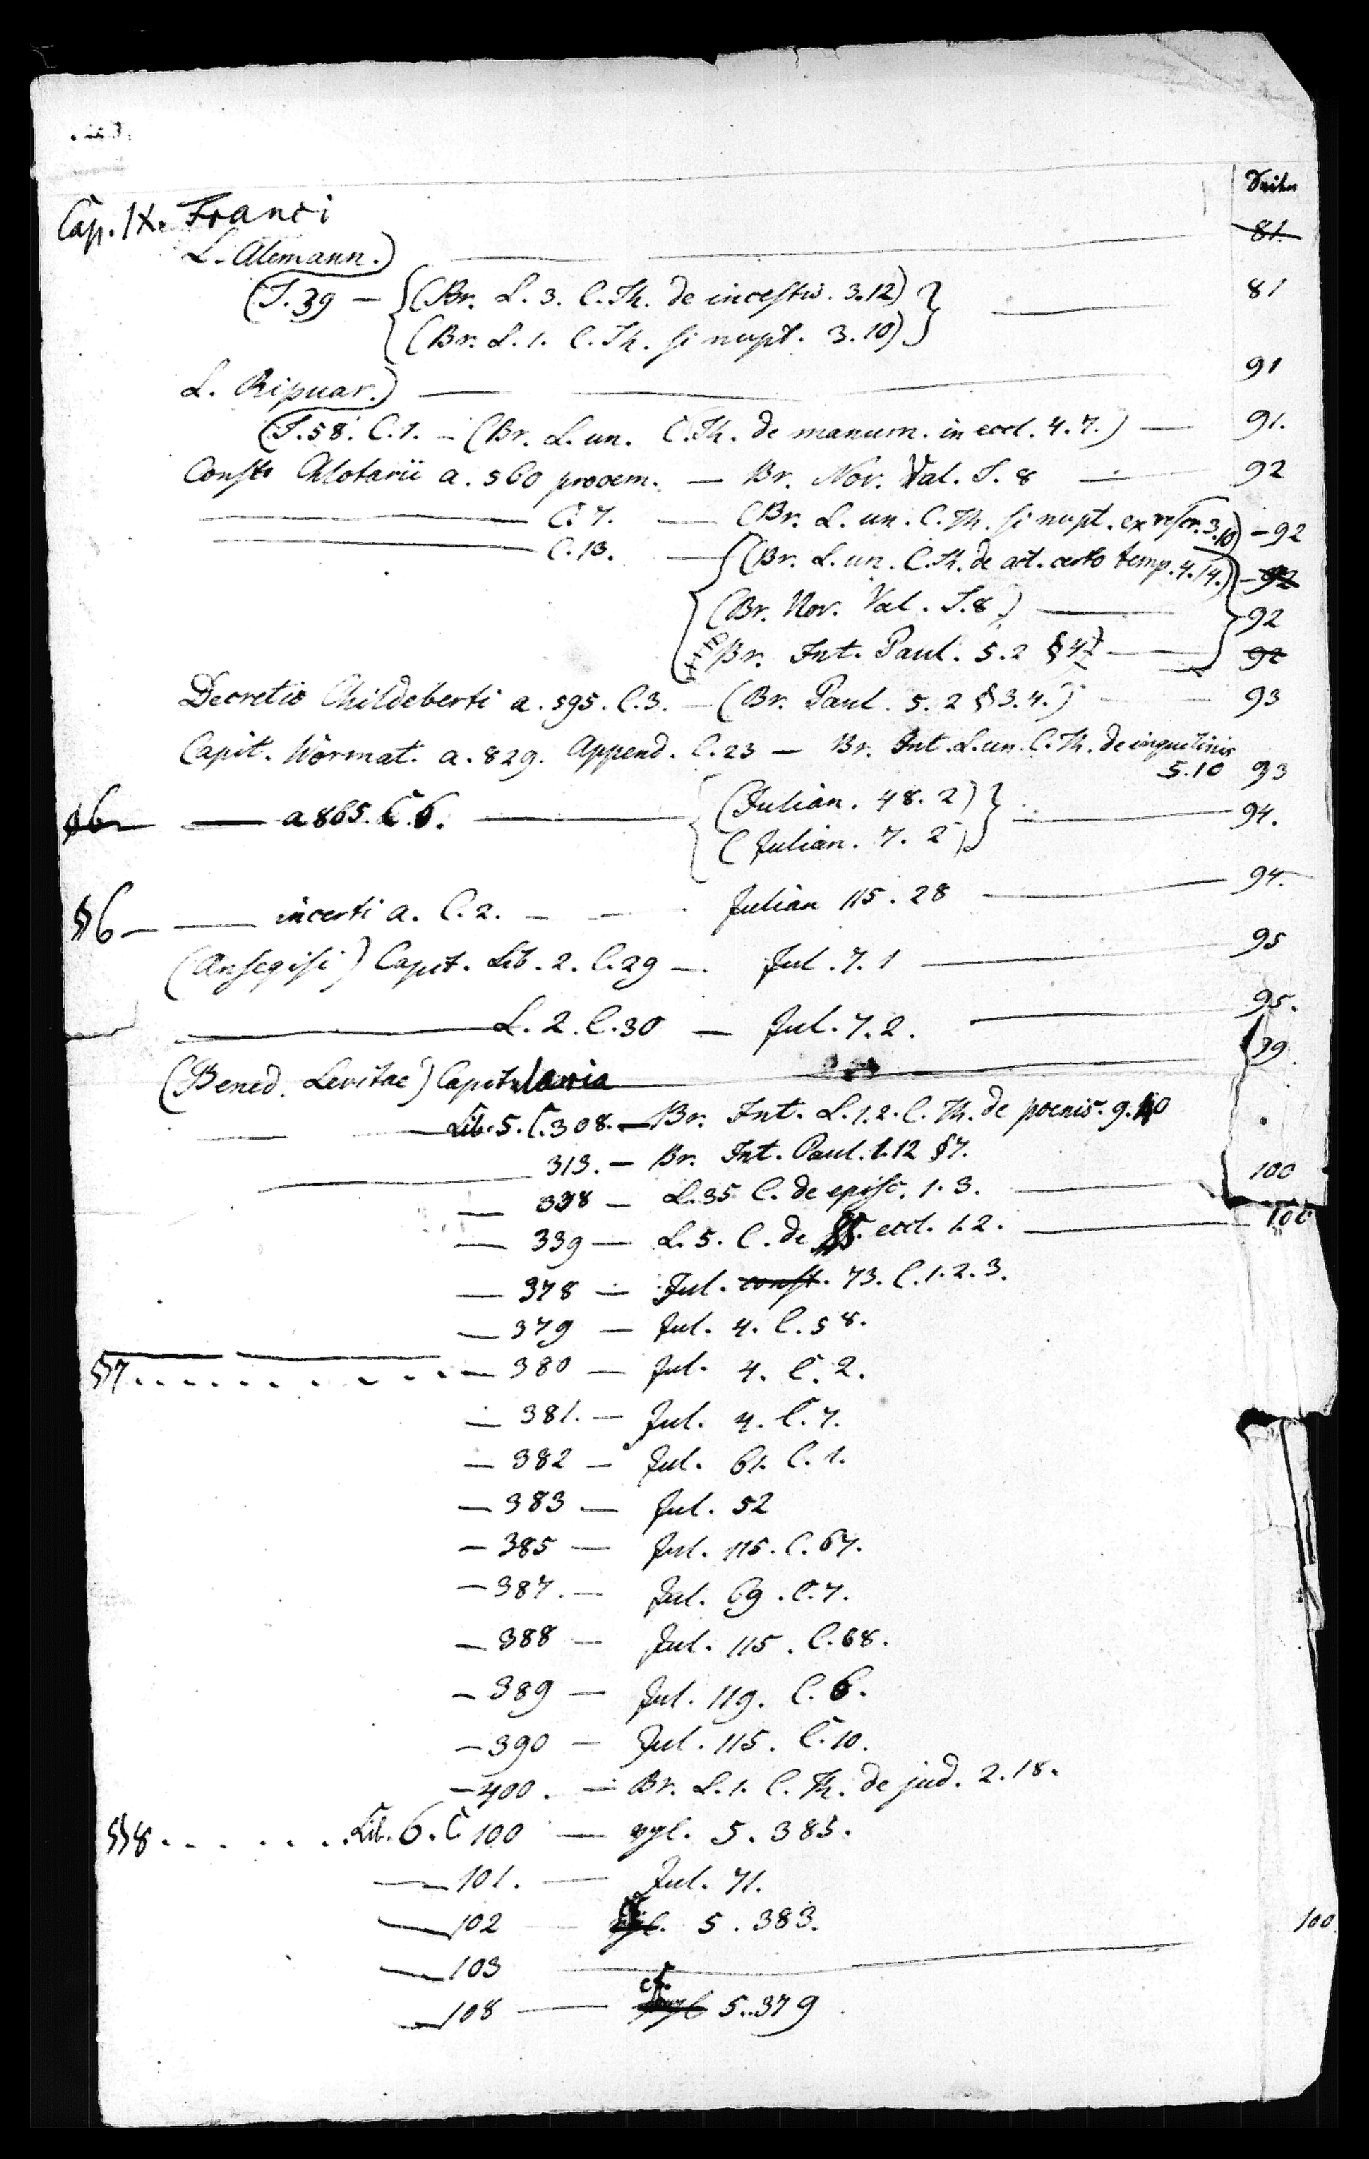 Seiten
Cap. IX. Franci
L. Alemann.) — — 81.
(T. 39 — {(Br. L. 3. C. Th. de incestis. 3.12)} — 81
{(Br. L. 1. C. Th. si nupt. 3.10)}
L. Ripuar.) — — 91
(T. 58. C. 1. — (Br. L. un. C. Th. de manum. in eccl. 4.7.) — 91.
Consto Chlotarii a. 560 prooem. — Br. Nov. Val. T. 8 — 92
— C. 7. — (Br. L. un. C. Th. si nupt. ex rescr. 3.10) — 92
— C. 13. — {(Br. L. un. C. Th. de act. certo temp. 4.14.)} — 92
(Br. Nov. Val. T. 8) — 92
Br. Int. Paul. 5.2 § 4 — 92
Decretio Childeberti a. 595. C. 3. — (Br. Paul. 5. 2 § 3.4.) — 93
Capit. Wormat. a. 829. Append. C. 23 — Br. Int. L. un. C. Th. de inquilinis
5.10 93
§6 — a 865. C. 6. — {(Julian. 48. 2)} — 94.
{(Julian. 7. 2)}
§6 — incerti a. C. 2. — Julian 115. 28 — 94.
(Ansegisi) Capit. Lib. 2. C. 29 — Jul. 7. 1 — 95
— L. 2. C. 30 — Jul. 7. 2. — 95.
(Bened. Levitae) Capitularia — 99
— Lib. 5. C. 308. — Br. Int. L. 1. 2. C. Th. de poenis. 9.40
— 313. — Br. Int. Paul. 1.12 § 7.
— 338 — L. 35 C. de episc. 1. 3. — 100
— 339 — L. 5. C. de SS. eccl. 1.2. — 100
— 378 — Jul. const. 73. C. 1. 2. 3.
— 379 — Jul. 4. C. 58.
§7. . . . . . . . . — 380 — Jul. 4. C. 2.
— 381. — Jul. 4. C. 7.
— 382 — Jul. 61. C. 1.
— 383 — Jul. 52
— 385 — Jul. 115. C. 67.
— 387. — Jul. 69. C. 7.
— 388 — Jul. 115. C. 68.
— 389 — Jul. 119. C. 6.
— 390 — Jul. 115. C. 10.
— 400. — Br. L. 1. C. Th. de jud. 2. 18.
§8. . . . . . . Lib. 6. C. 100 — vgl. 5. 385.
— 101. — Jul. 71.
— 102 — 5. 383.
— 103 — 100
— 108 — cf. 5. 379